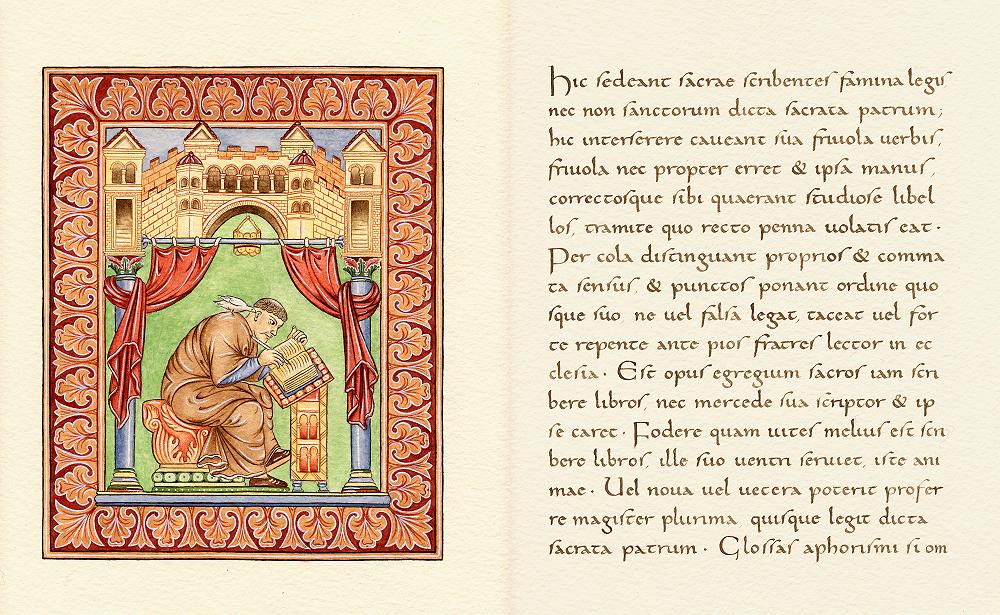 Hic sedeant sacrae scribentes famina legis
nec non sanctorum dicta sacrata patrum;
hic interserere caveant sua frivola verbis,
frivola nec propter erret & ipsa manus,
correctosque sibi quaerant studiose libel
los, tramite quo recto penna volatis eat.
Per cola distinguant proprios & comma
ta sensus, & punctos ponant ordine quo
sque suo, ne vel falsa legat, taceat vel for
te repente ante pios fratres lector in ec
clesia. Est opus egregium sacros iam scri
bere libros, nec mercede sua scriptor & ip
se caret. Fodere quam vites melius est scri
bere libros, ille suo ventri serviet, iste ani
mae. Vel nova vel vetera poterit profer
re magister plurima, quisque legit dicta
sacrata patrum. Glossas aphorismi si om